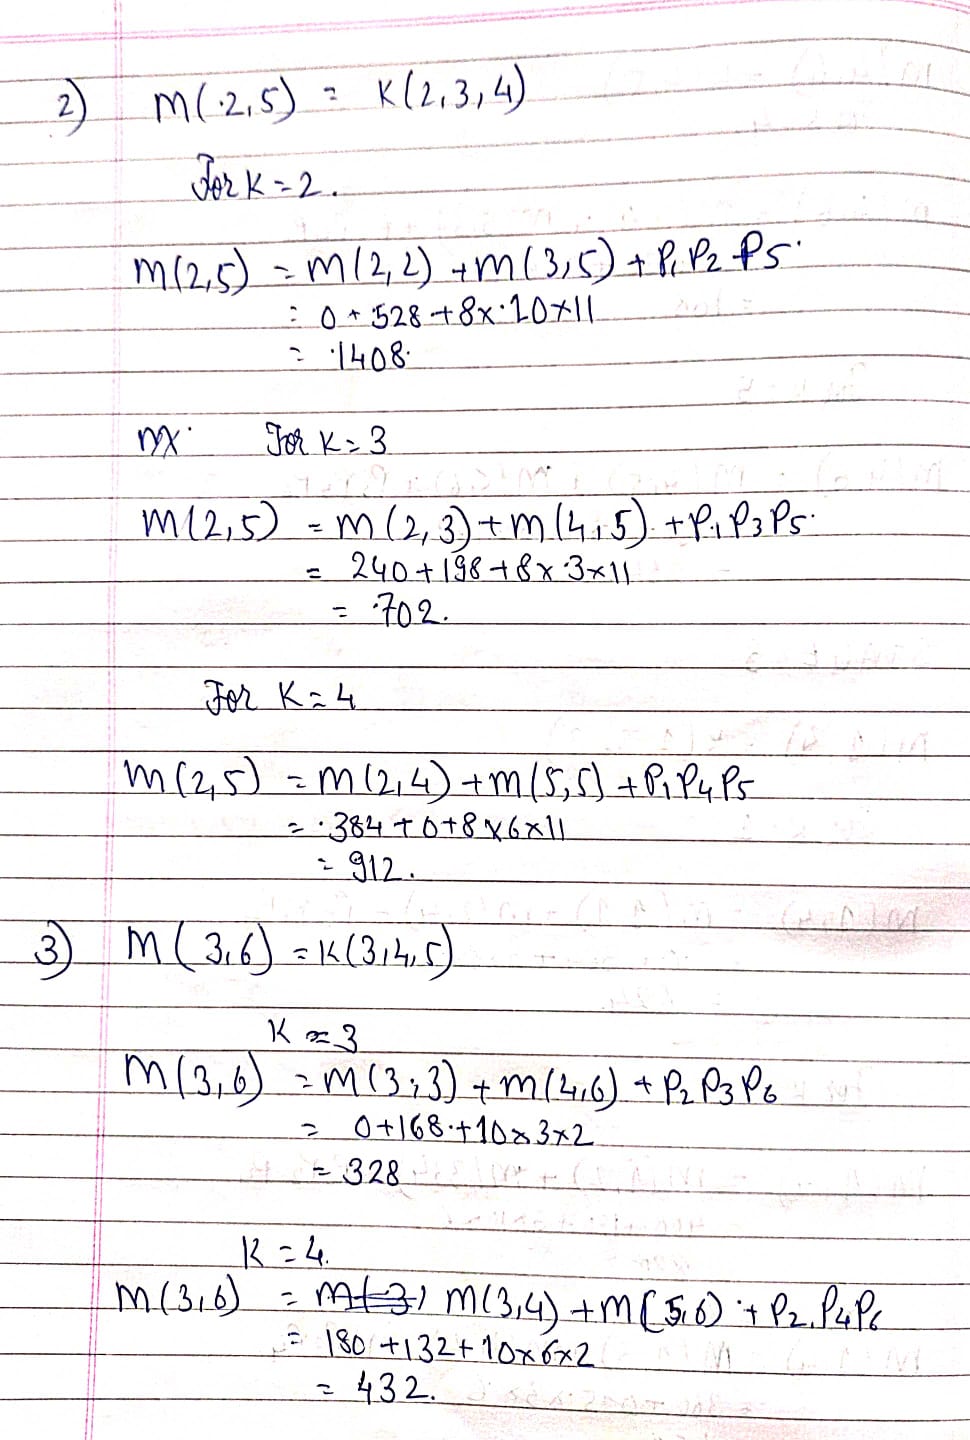 2) M(2,5) = K(2,3,4)
For K = 2.
M(2,5) = M(2,2) + M(3,5) + P1 P2 P5
= 0 + 528 + 8 x 10 x 11
= 1408.
For K = 3
M(2,5) = M(2,3) + M(4,5) + P1 P3 P5
= 240 + 198 + 8 x 3 x 11
= 702.
For K = 4
M(2,5) = M(2,4) + M(5,5) + P1 P4 P5
= 384 + 0 + 8 x 6 x 11
= 912.
3) M(3,6) = K(3,4,5)
K = 3
M(3,6) = M(3,3) + M(4,6) + P2 P3 P6
= 0 + 168 + 10 x 3 x 2
= 328
K = 4.
M(3,6) = M(3, M(3,4) + M(5,6) + P2 P4 P6
= 180 + 132 + 10 x 6 x 2
= 432.